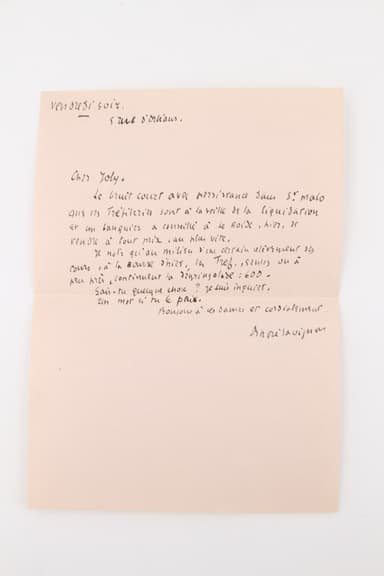 Vendredi soir.
5 rue d'Orléans.
Cher Joly.
Le bruit court avec persistance dans St malo
que les Tréfileries sont à la veille de la liquidation
et un banquier a conseillé à Le hier, de
vendre à tout prix, au plus vite.
Je vois qu'au milieu d'un certain relèvement des
cours, à la Bourse d'hier, les Tref, seules ou à
peu près, continuent la dégringolade : 600.
Sais-tu quelque chose ? Je suis inquiet.
Un mot si tu le peux.
Bonjour à ces Dames et cordialement
André Savignon